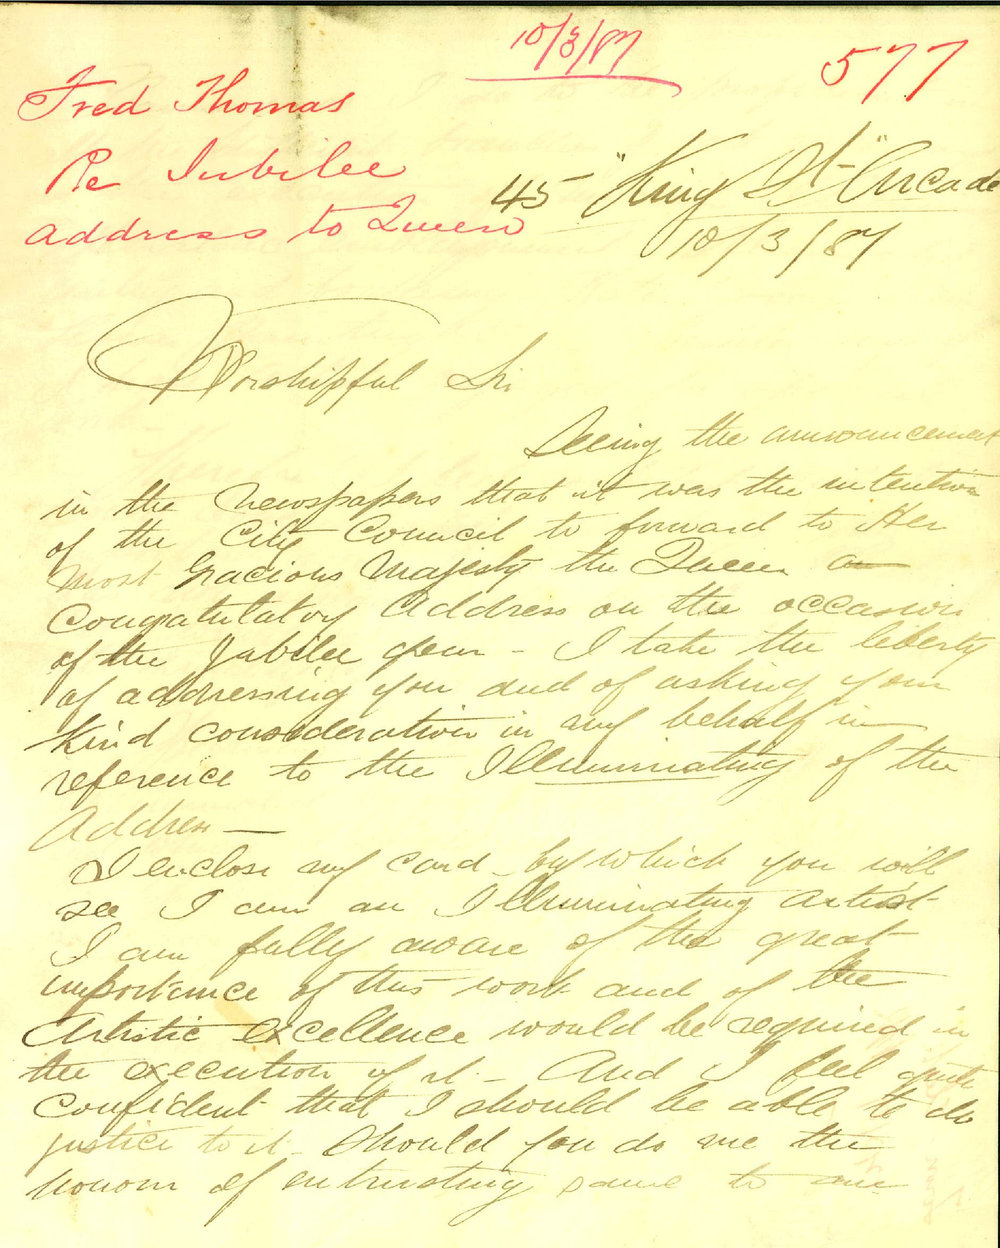 10/3/87
577
Fred Thomas
Re Jubilee
address to Queen
45 "King St" Arcade
10/3/87
Worshipful Sir
Seeing the announcement
in the Newspapers that it was the intention
of the City Council to forward to Her
Most Gracious Majesty the Queen an
Congatulatory Address on the occasion
of the Jubilee year - I take the liberty
of addressing you and of asking your
kind consideration in my behalf in
reference to the Illuminating of the
Address —
I enclose my card by which you will
see I am an Illuminating Artist
I am fully aware of the great
importance of this work and of the
Artistic excellence would be required in
the execution of it - And I feel quite
confident that I should be able to do
justice to it - Should you do me the
honour of entrusting same to me